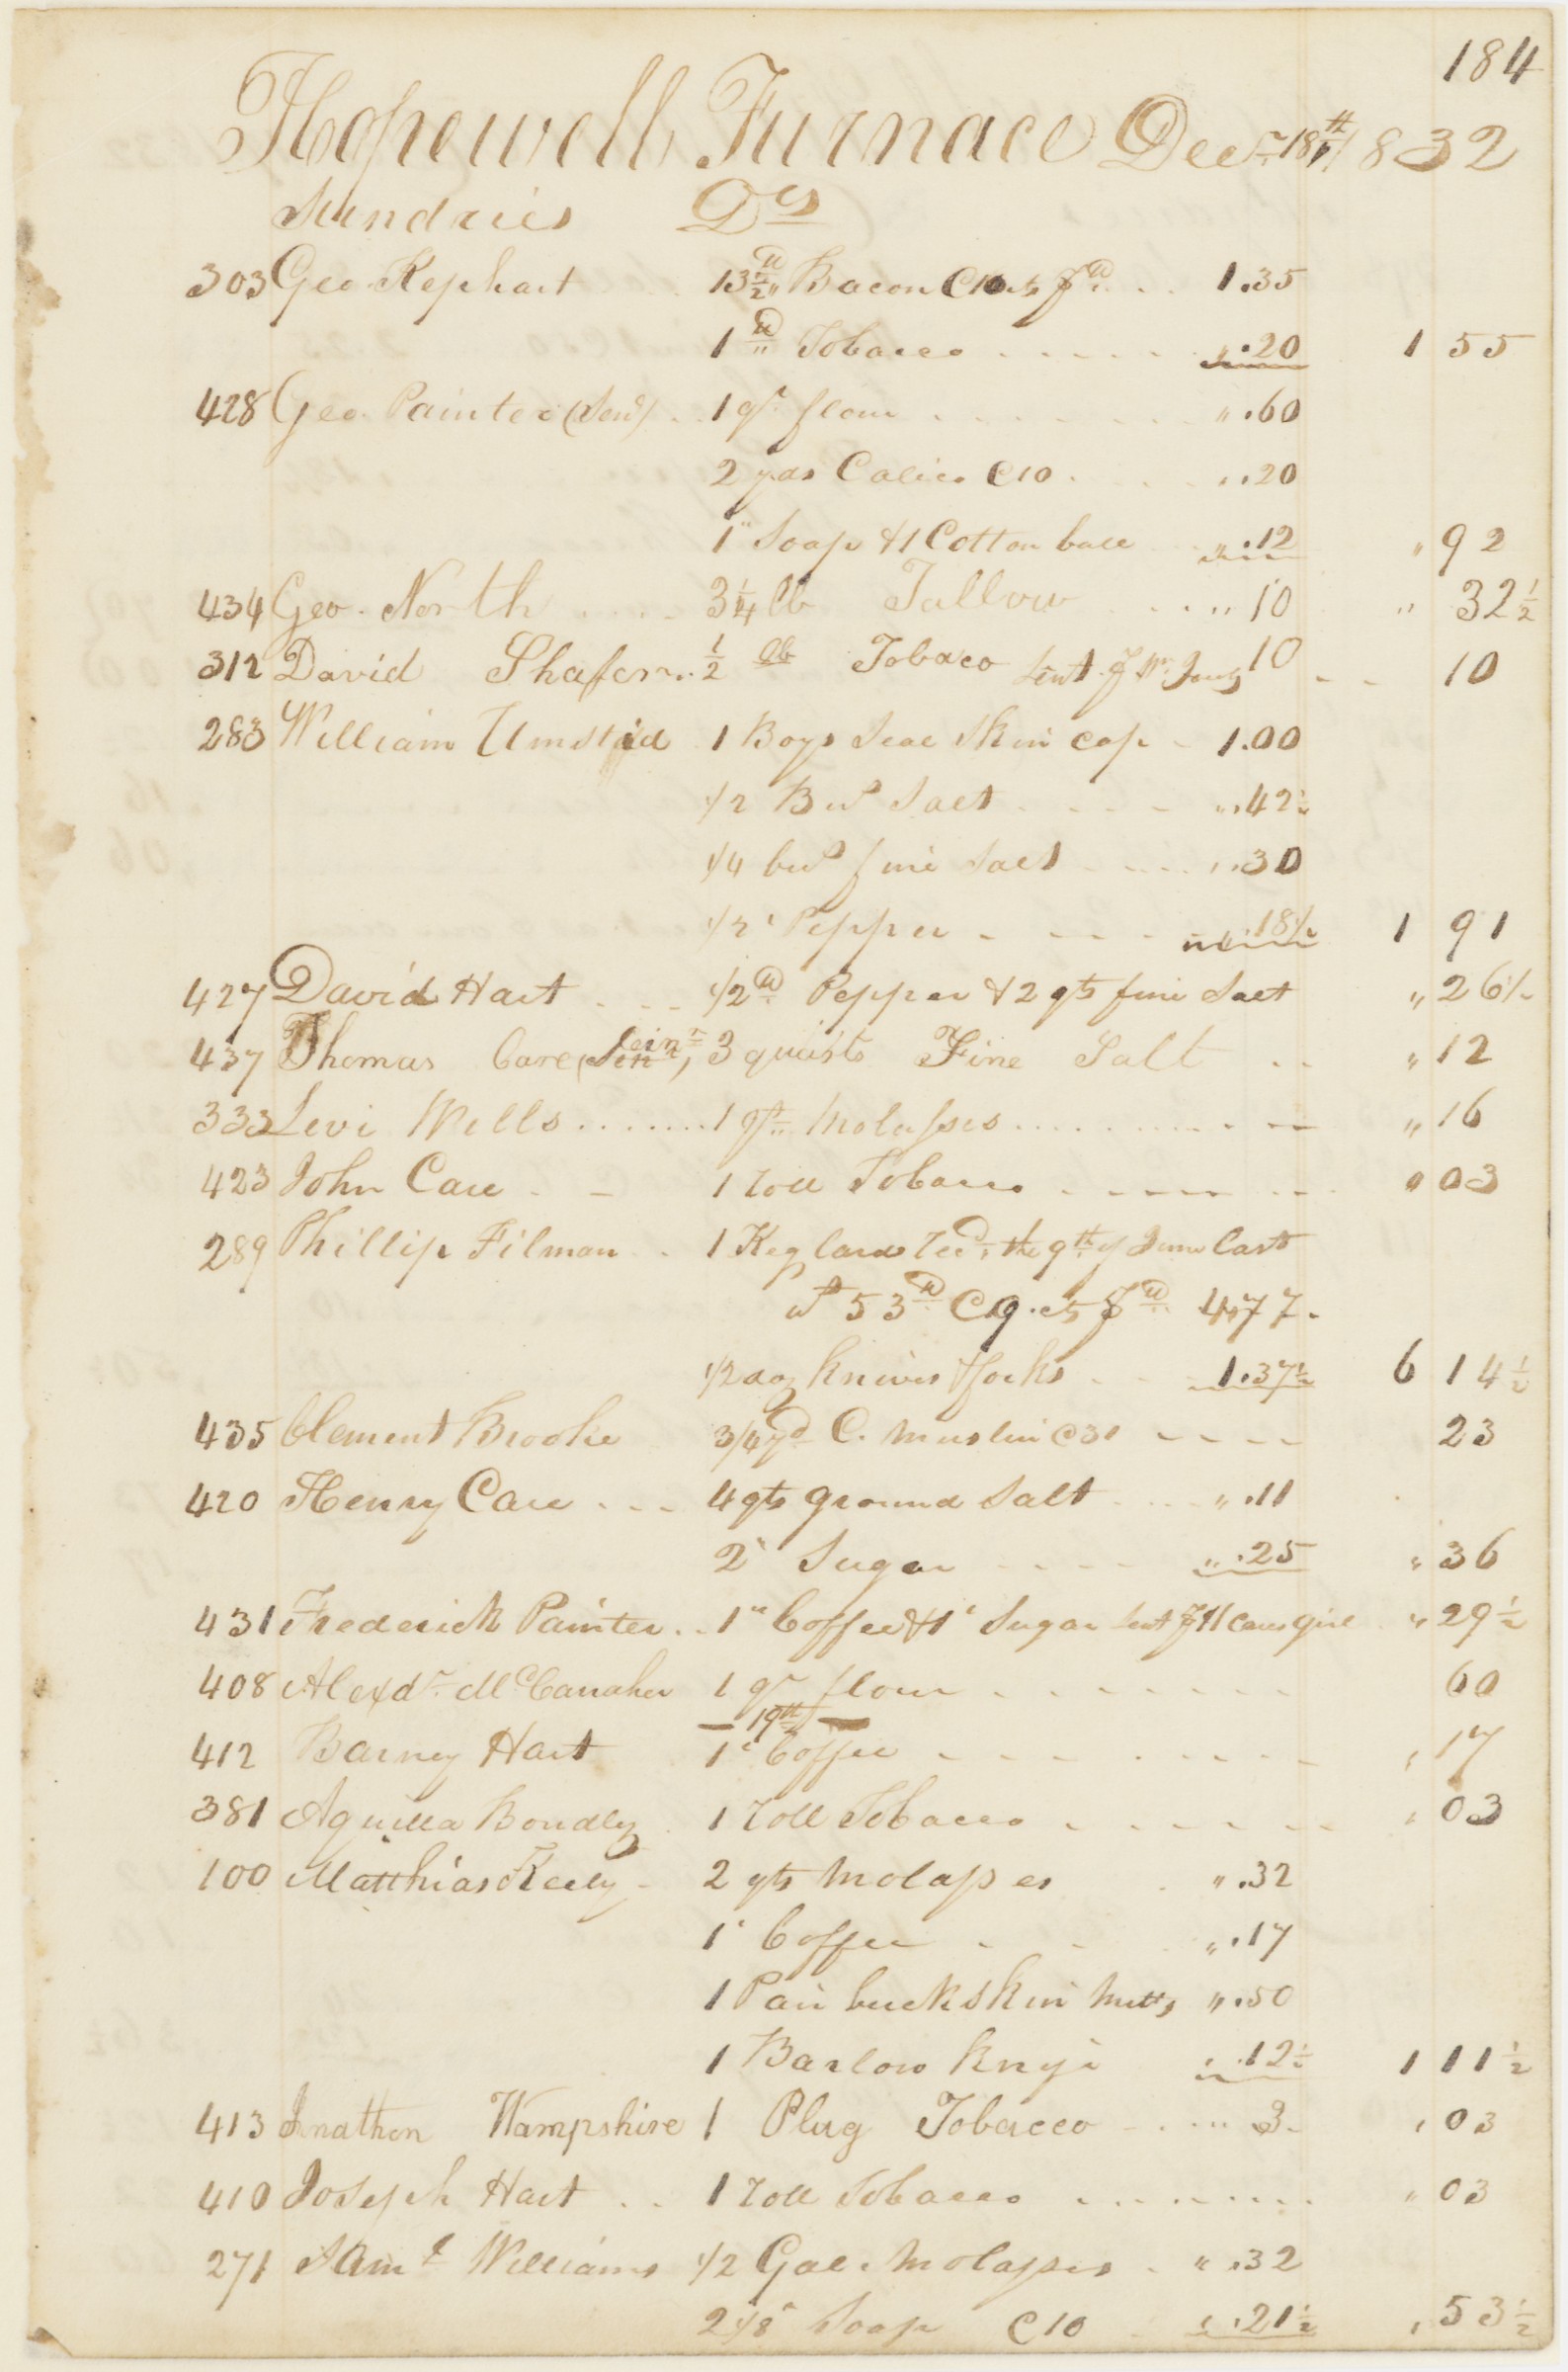 184
Hopewell Furnace Decr. 18th 1832
Sundries Drs
303 Geo Kephart 13½ lb Bacon @10 cts ⅌ lb 1.35
1 lb Tobacco .20 1 55
428 Geo. Painter (Senr) 1 qr flour .60
2 yds Calico @10 .20
1" Soap & 1 Cotton ball .12 " 92
434 Geo. North 3¼ lb Tallow 10 " 32½
312 David Shafer ½ lb Tobaco Sent ⅌ 10 10
283 William Umsted 1 Boys Seal Skin cap 1.00
1/2 Bus Salt .42½
1/4 bus fine Salt .30
1/2 " Pepper 18½ 1 91
427 David Hart 1/2 lb Pepper & 2 qts fine Salt " 26½
437 Thomas Care (Seinr) 3 quarts Fine Salt " 12
333 Levi Wells 1 qt Molasses " 16
423 John Care 1 roll Tobacco " 03
289 Phillip Filman 1 Keg lard recd. the 9th of June last
wt 53 lb @9 cts ⅌ lb 4.77
1/2 doz knives & forks 1.37½ 6 14½
435 Clement Brooke 3/4 yd C. Muslin @31 23
420 Henry Care 4 qts ground Salt " .11
2" Sugar " .25 " 36
431 Frederick Painter 1" Coffee & 1" Sugar sent ⅌ H Cares girl " 29½
408 Alexdr. McCanaher 1 qr flour 60
19th
412 Barney Hart 1" Coffee " 17
381 Aquilla Bondly 1 roll Tobacco " 03
100 Matthias Keely 2 qts Molasses " .32
1" Coffee " .17
1 Pair buckskin Mitts " .50
1 Barlow knife .12½ 1 11½
413 Jnathon Wampshire 1 Plug Tobacco 3 " 03
410 Joseph Hart 1 roll Tobacco " 03
271 Saml Williams 1/2 Gal. Molasses " .32
2 1/8" Soap @10 .21½ " 53½